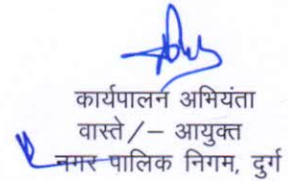 कार्यपालन अभियंता
वास्ते/- आयुक्त
नगर पालिक निगम, दुर्ग